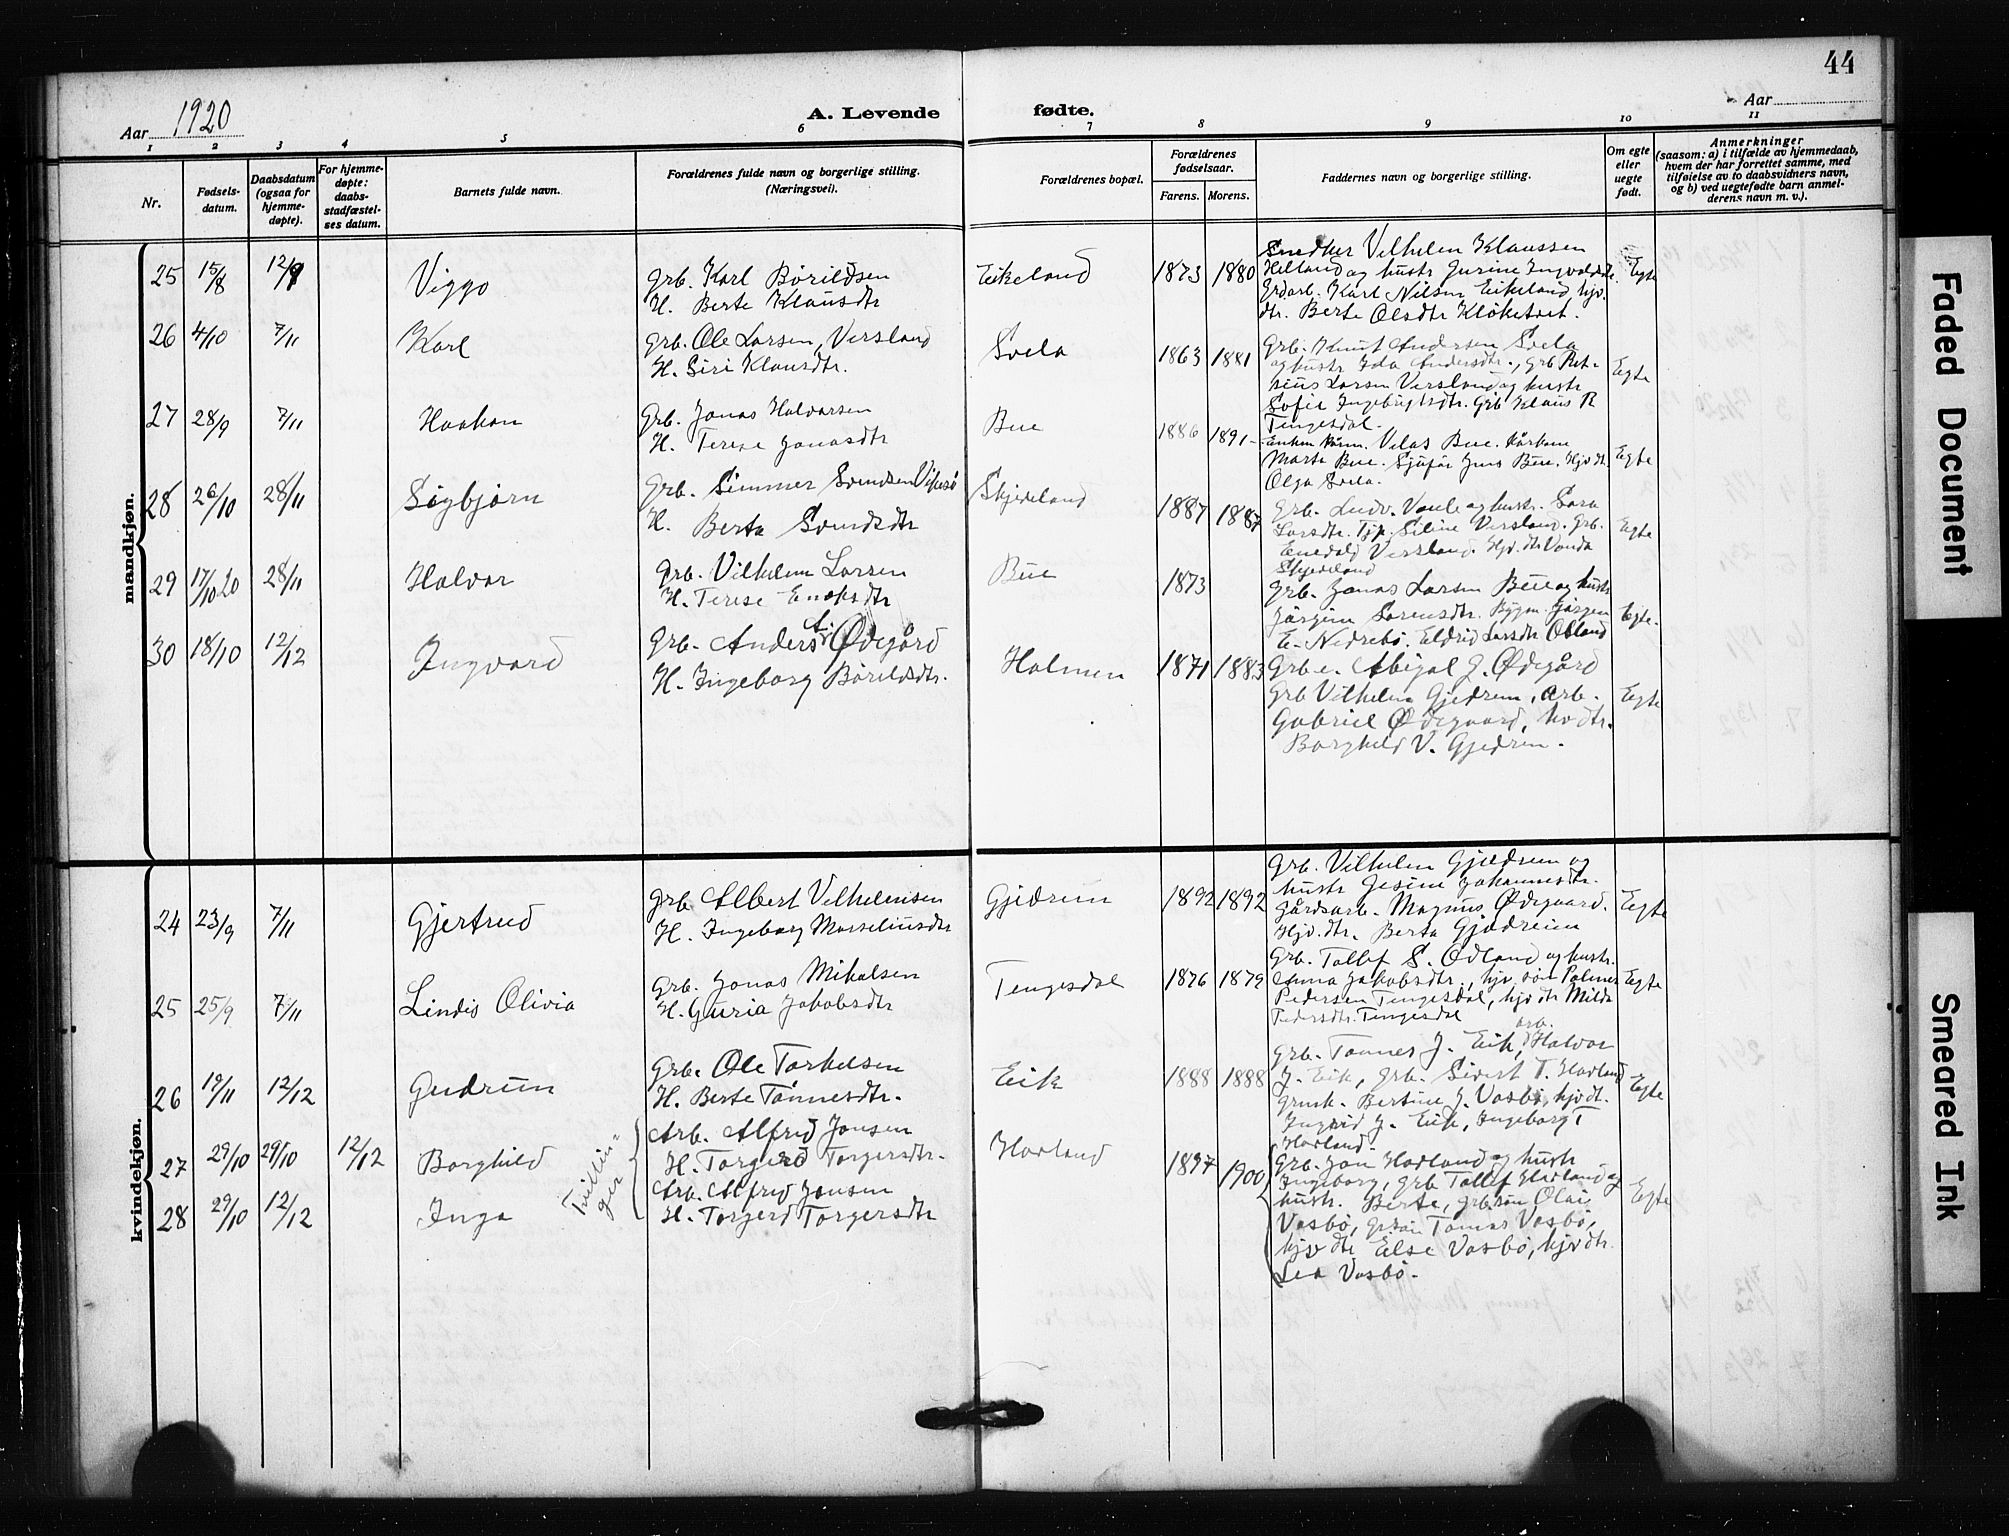 44
Aar 1920
A. Levende fødte.
Aar
1 2 3 4 5 6 7 8 9 10 11
Nr.
Fødsels-
datum.
Daabsdatum
(ogsaa for
hjemme-
døpte).
For hjemme-
døpte:
daabs-
stadfæstel-
ses datum.
Barnets fulde navn.
Forældrenes fulde navn og borgerlige stilling.
(Næringsvei).
Forældrenes bopæl.
Forældrenes
fødselsaar.
Farens. Morens.
Faddernes navn og borgerlige stilling.
Om egte
eller
uegte
født.
Anmerkninger
(saasom: a) i tilfælde av hjemmedaab,
hvem der har forrettet samme, med
tilføielse av to daabsvidners navn,
og b) ved uegtefødte barn anmel-
derens navn m. v.).
mandkjøn.
25 15/8 12/9 Viggo
Grb. Karl Børildsen
H. Berte Klausdtr
Eikeland 1873 1880
Snedker Vilhelm Klaussen
Helland og hustr Gurine Ingvaldsdtr.
Grdarb. Karl Nilsen Eikeland, hjv.
dtr. Berte Olsdtr Kløketvet.
Egte
26 4/10 7/11 Karl
Grb. Ole Larsen, Versland
H. Siri Klausdtr.
Svela 1863 1881
Grb. Knut Andersen Svela
og hustr Ida Andersdtr., Grb Pet-
Larsen Versland og hustr
Sofie Ingebrigtsdtr. Grb Klaus R
Tengesdal.
Egte
27 28/9 7/11 Haakon
Grb. Jonas Halvorsen
H. Terese Jonasdtr
Bue 1886 1891
Velas Bue.
Marte Bue. Sjufør Jens Bue. Hjv dt.
Olga Svela.
Egte
28 26/10 28/11 Sigbjørn
Grb. Simmer Svendsen Vikesø
H. Berta Svendsdtr
Skjeveland 1887 1887
Grb. Ludv. Vaule og hustr. Sara
Larsdtr. Tjp. Seline Versland. Grb.
Enevald Versland. Hjv. dtr Vanda
Skjeveland
Egte
29 17/10 20 28/11 Halvor
Grb. Vilhelm Larsen
H. Terese Enoksdtr
Bue 1873
Grb. Jonas Larsen Bue og hustr
Jørgine Sørensdtr. Bygm. Jørgen
E. Nedrebø. Eldrid Larsdtr Øvland
Egte.
30 18/10 12/12 Ingvard
Grb. Anders A. Ødegård
H. Ingeborg Børildsdtr.
Holmen 1871 1883
Grb e. Abigal J. Ødegård
Grb Vilhelm Gjedrem, arb.
Gabriel Ødegaard, hv dtr.
Borghild V. Gjedrem.
Egte
kvindekjøn.
24 23/9 7/11 Gjertrud
Grb Albert Vilhelmsen
H. Ingeborg Masseliusdtr
Gjedrem 1892 1892
Grb. Vilhelm Gjedrem og
hustr Gesine Johannesdtr.
Gårdsarb. Magnus Ødegaard.
Hjv. dtr. Berta Gjedreim
Egte
25 25/9 7/11 Lindis Olivia
Grb. Jonas Mikalsen
H. Guria Jakobsdtr
Tengesdal 1876 1879
Grb. Tollef S. Ødland og hustr.
Anna Jakobsdtr., hjv. søn Palmer
Pedersen Tengesdal, hjv dtr Milda
Pedersdtr. Tengesdal
Egte
26 19/11 12/12 Gudrun
Grb. Ole Torkelsen
H. Berte Tønnesdtr.
Eik 1888 1888
Grb. Tønnes J. Eik, arb. Halvor
J. Eik, Grb. Sivert T. Hovland
Grmk. Bertine J. Vasbø, hjv dt.
Ingrid J. Eik, Ingeborg T
Hovland.
Egte
27 29/10 29/10 12/12 Borghild
Arb. Alfred Jonsen
H. Torgerd Torgersdtr.
28 29/10 12/12 Inga
Tvillin-
ger
Arb. Alfred Jonsen
H. Torgerd Torgersdtr
Hovland 1897 1900
Grb. Jon Hovland og hustr
Ingeborg, Grb Tollef Hovland og
hustr. Berte, Grb. søn Olai
Vasbø, Grb søn Tomas Vasbø,
hjv dtr Else Vasbø, hjv dtr.
Lea Vasbø.
Egte
Faded Document
Smeared Ink